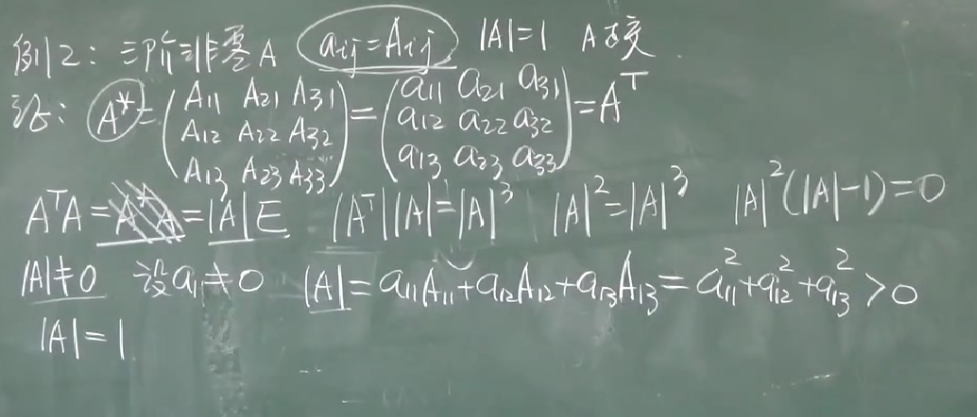 例2: 三阶非零A a_{ij}=A_{ij} |A|=1 A可变
证: A*=(A₁₁ A₂₁ A₃₁ = (a₁₁ a₂₁ a₃₁ =Aᵀ
A₁₂ A₂₂ A₃₂ a₁₂ a₂₂ a₃₂
A₁₃ A₂₃ A₃₃) a₁₃ a₂₃ a₃₃)
AᵀA=A*A=|A|E |Aᵀ||A|=|A|³ |A|²=|A|³ |A|²(|A|-1)=0
|A|≠0 设a₁≠0 |A|=a₁₁A₁₁+a₁₂A₁₂+a₁₃A₁₃=a₁₁²+a₁₂²+a₁₃²>0
|A|=1